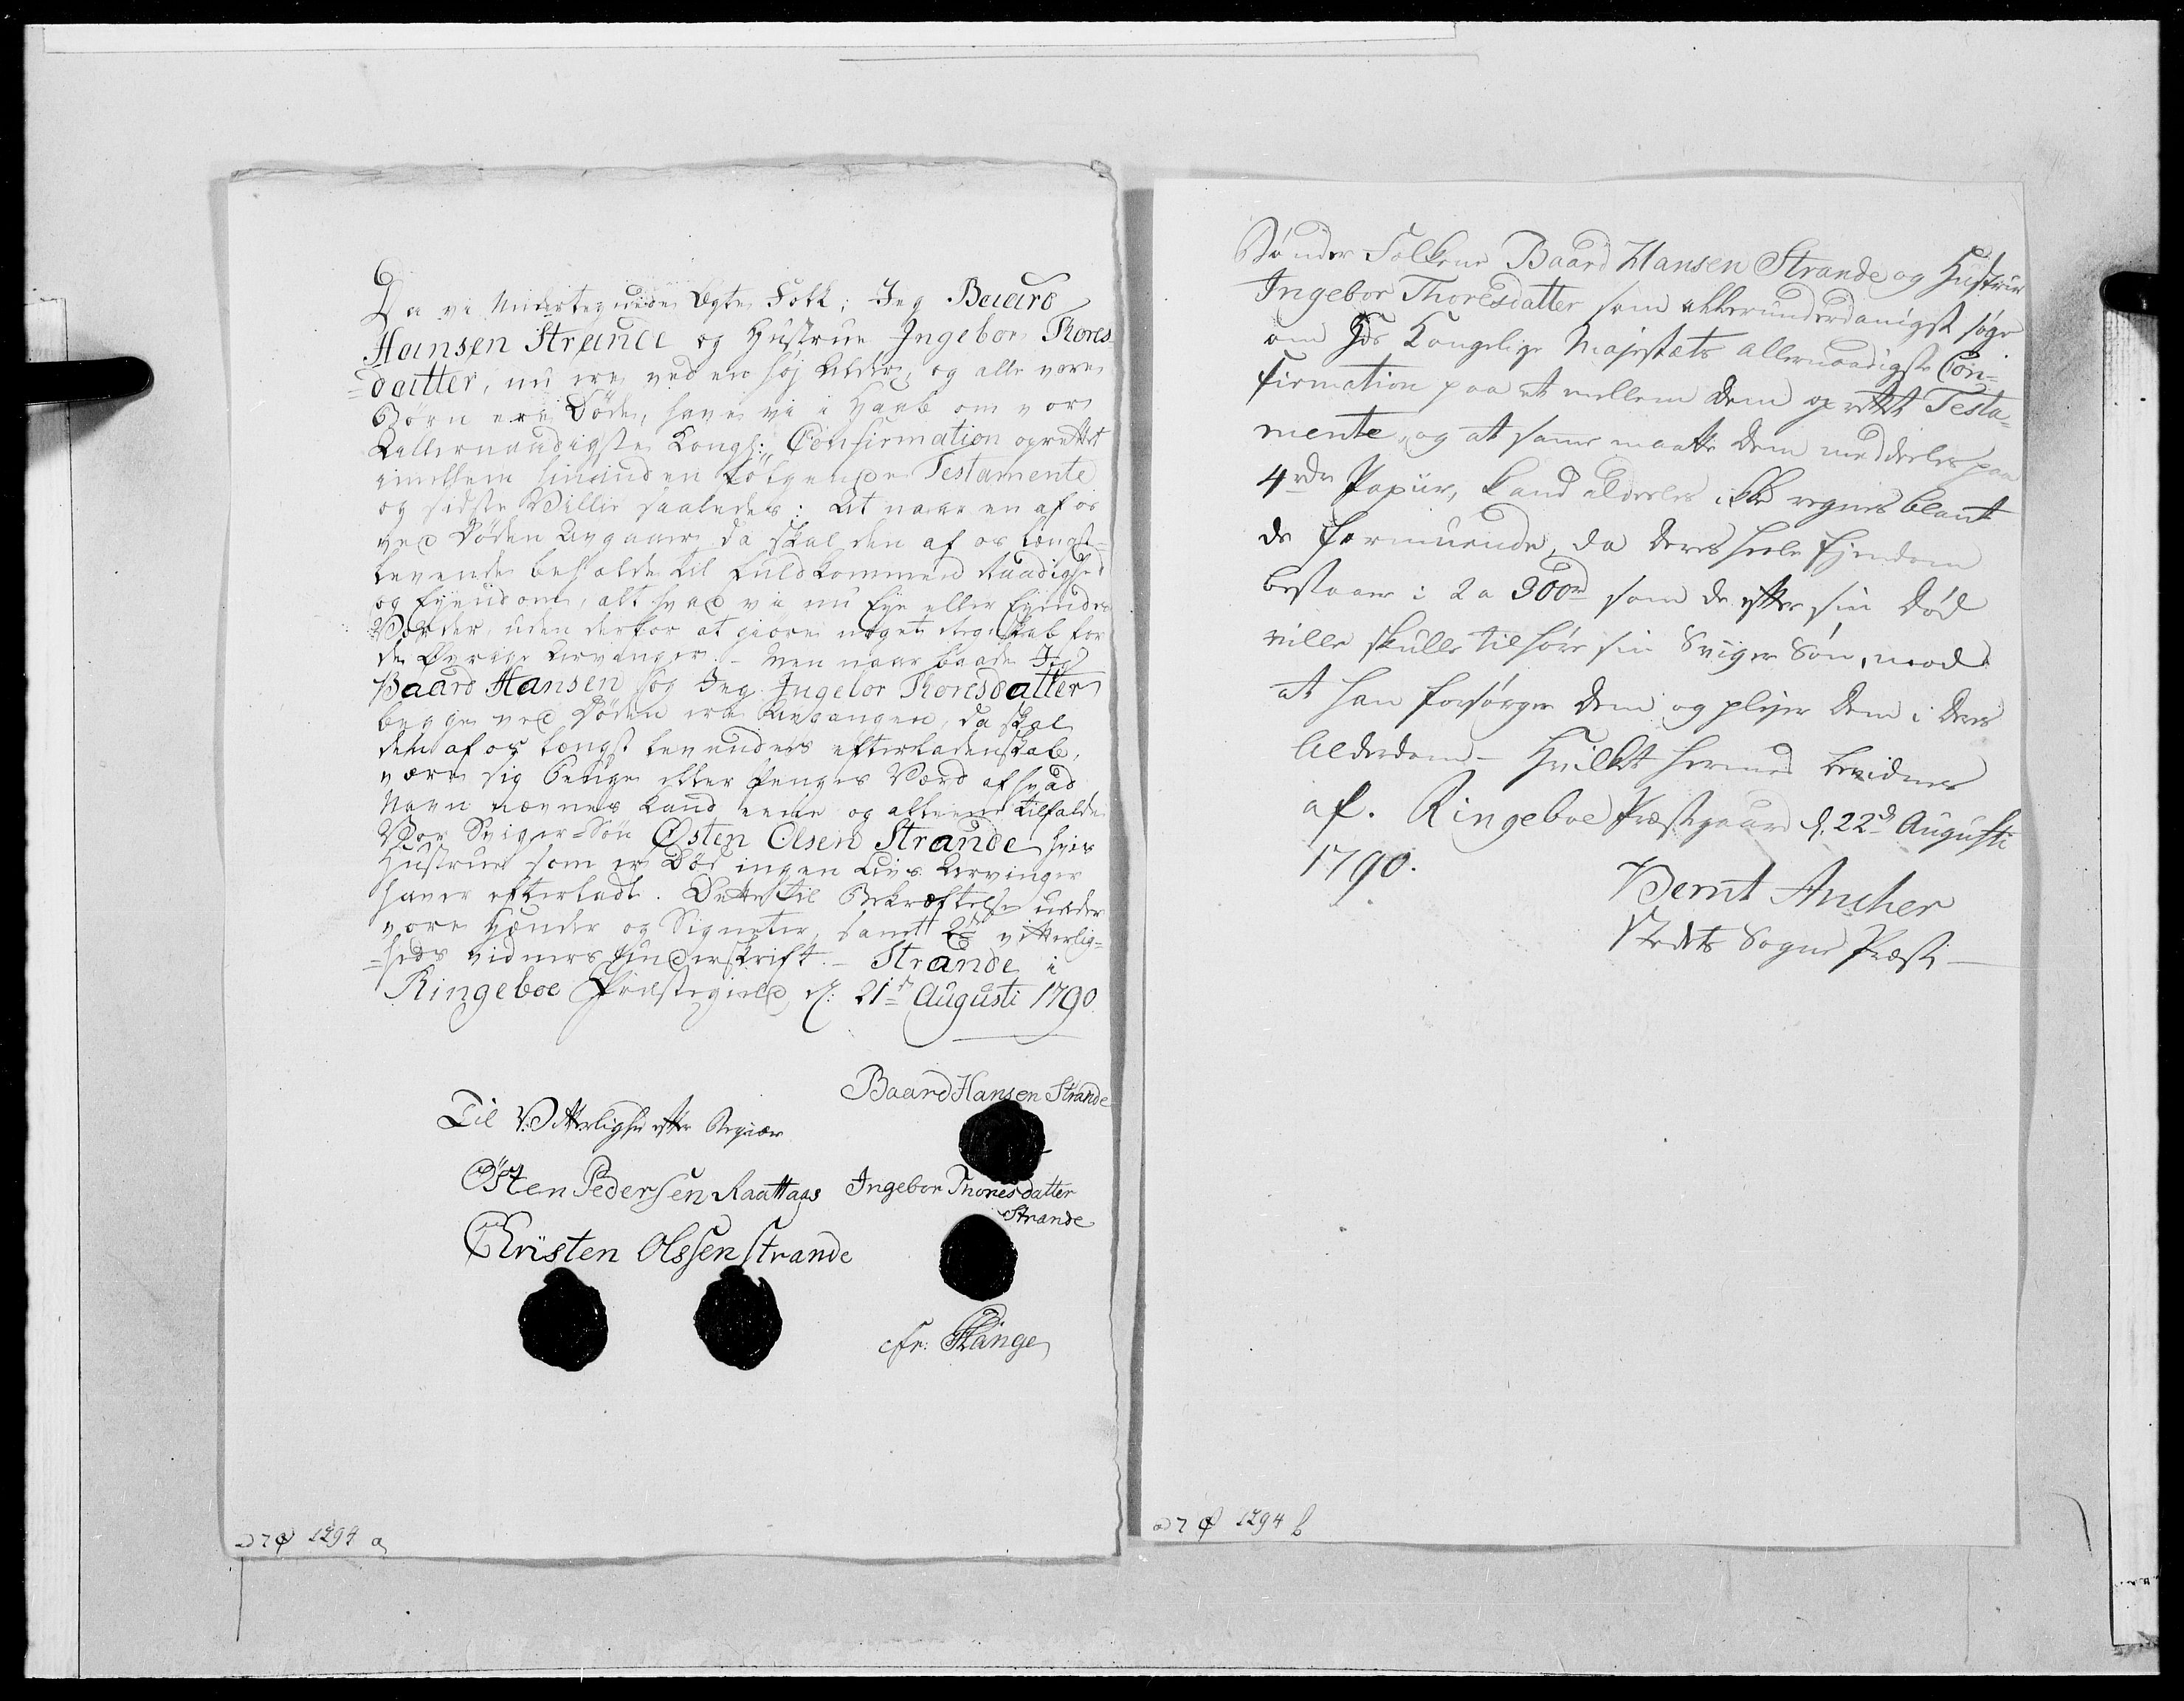 Da vi undertegnede Egte Folk; Jeg Baard
Hansen Strande og Hustrue Ingebor Thores
=datter, nu ere ved en høj Alder, og alle vore
Børn ere Døde, have vi i Haab om vor
Allernaadigste Kongl: Confirmation oprettet
imellem hinanden følgende Testamente
og sidste Villie saaledes: At naar en af os
ved Døden Avgaaer, da skal den af os længst-
levende beholde til fuldkommen Raadighed
og Eyendom, alt hvad vi nu Eye eller Eyendes
Vorder, uden derfor at giøre noget Regnskab for
de Øvrige Arvinger. - Men naar baade Jeg
Baard Hansen og Jeg Ingebor Thoresdatter
begge ved Døden ere Avgangen, da skal
den af os længst levendes efterladenskab,
være sig Penge eller Penges Værd af hvad
Navn nævnes kand eene og alleene tilfalde
Vor Sviger-Søn Østen Olsen Strande hvis
Hustrue som er Død ingen Livs Arvinger
haver efterladt. Dette til Bekræftelse under
vore Hænder og Signeter, samt 2de vitterlig=
=heds vidners Underskrift. - Strande i
Ringeboe Præstegield, d: 21de Augusti 1790.
Baard Hansen Strande
Til Vitterlighed efter Begiær
Østen Pedersen Raattaas Ingebor Thoresdatter
Strande
Christen Olssen Strande
cfr: Stange
ad 7 1294 a
Bønder Folkene Baard Hansen Strande og Hustrue
Ingebor Thoresdatter som allerunderdanigst søge
om Hds Kongelige Majestæts allernaadigste Con-
firmation paa et mellem dem oprettet Testa=
mente, og at samme maatte dem meddeeles paa
4 rdr Papiir, kand aldeeles ikke regnes blant
de formuende, da deres heele Ejendom
bestaaer i 2 a 300rd som de efter sin Død
ville skulle tilhøre sin Sviger Søn, mod
at han forsørger dem og plejer dem i deres
Alderdom - Hvilket hermed bevidnes
af. Ringeboe Præstgaard d. 22d Augusti
1790.
Bernt Ancher
Stedets Sogne Præst -
ad 7 1294 b